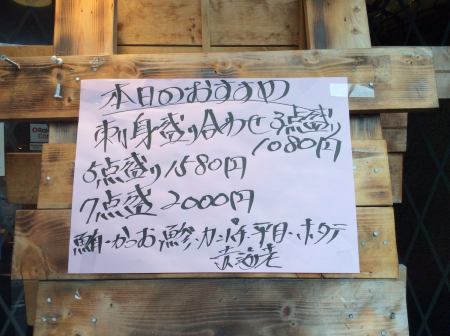 本日のおすすめ
刺身盛り合わせ 3点盛り
1080円
5点盛り 1580円
7点盛 2000円
鮪・かつお・鯵・カンパチ・平目・ホタテ
赤海老